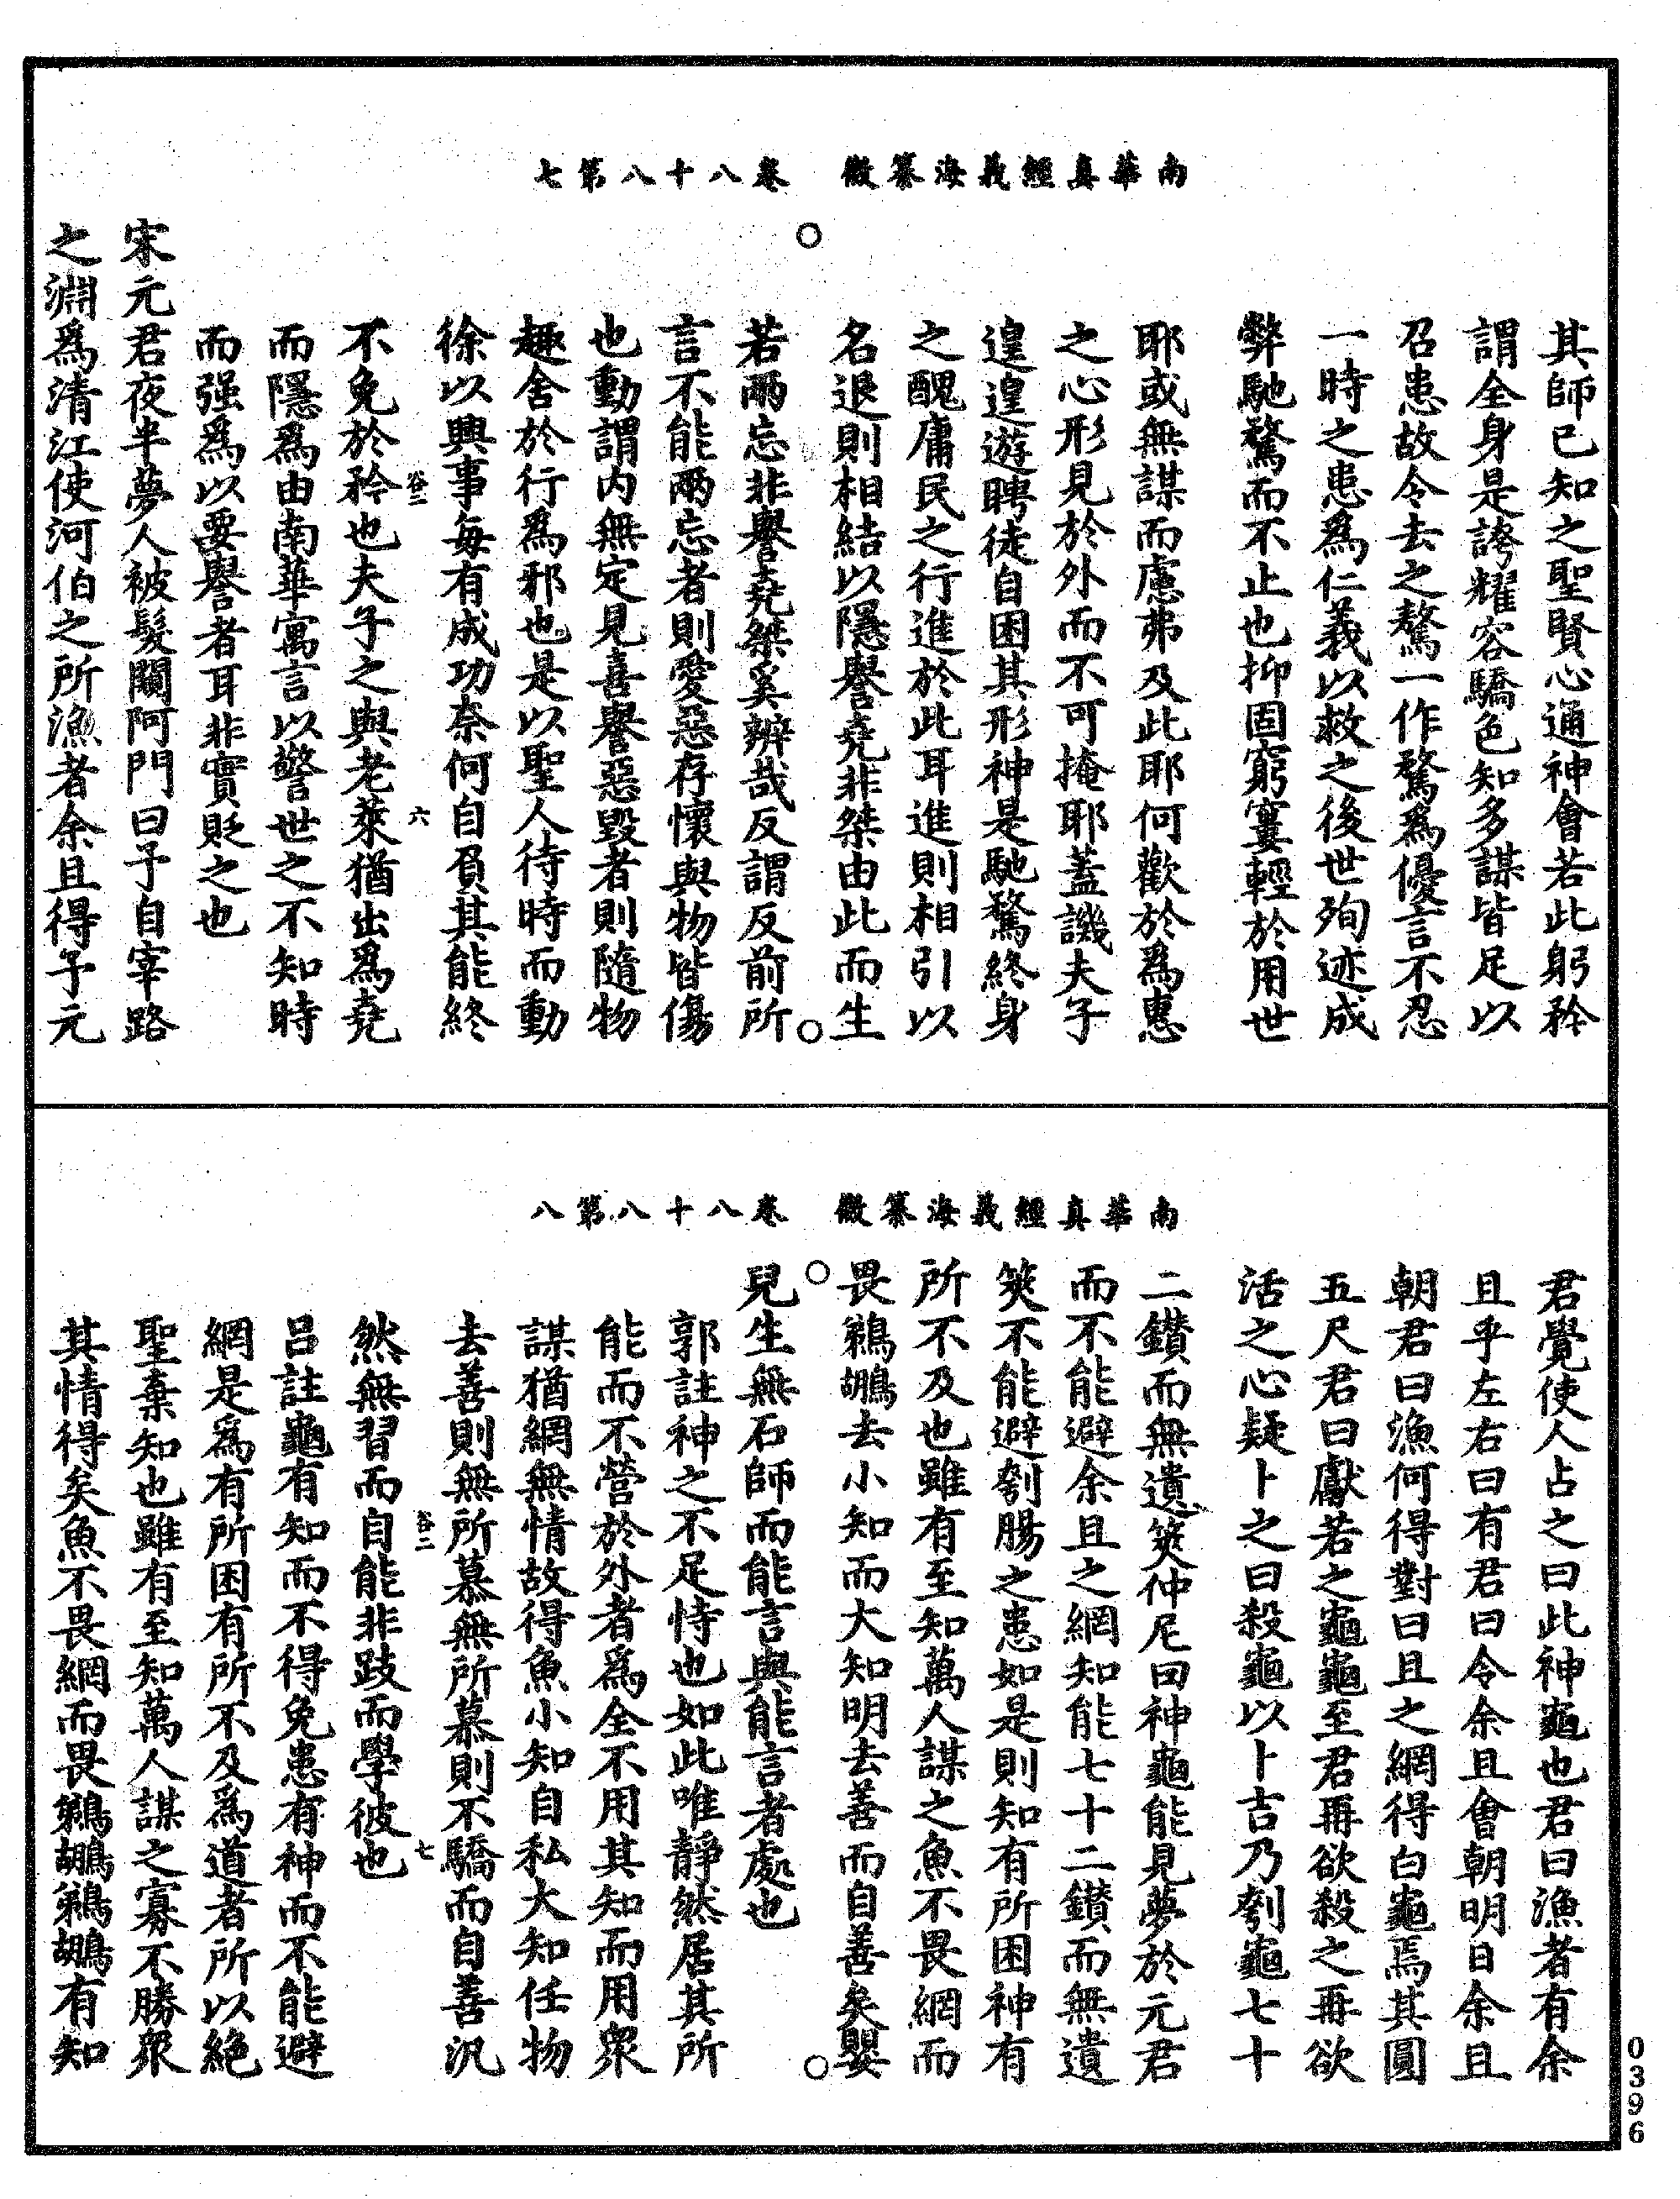 南華真經義海纂微　卷八十八第七
其師已知之聖賢心通神會若此躬矜
謂全身是誇耀容驕色知多謀皆足以
召患故令去之驁一作騖爲優言不忍
一時之患爲仁義以救之後世殉迹成
弊馳騖而不止也抑固窮窶輕於用世
耶或無謀而慮弗及此耶何歡於爲惠
之心形見於外而不可掩耶蓋譏夫子
遑遑遊聘徒自困其形神是馳騖終身
之醜庸民之行進於此耳進則相引以
名退則相結以隱譽堯非桀由此而生
若兩忘非譽堯桀奚辨哉反謂反前所
言不能兩忘者則愛惡存懷與物皆傷
也動謂内無定見喜譽惡毀者則隨物
趣舍於行爲邪也是以聖人待時而動
徐以興事每有成功柰何自負其能終
谷二　六
不免於矜也夫子之與老萊猶出爲堯
而隱爲由南華寓言以警世之不知時
而强爲以要譽者耳非實貶之也
宋元君夜半夢人被髮闚阿門曰予自宰路
之淵爲清江使河伯之所漁者余且得予元
南華真經義海纂微　卷八十八第八
君覺使人占之曰此神龜也君曰漁者有余
且乎左右曰有君曰令余且會朝明日余且
朝君曰漁何得對曰且之網得白龜焉其圓
五尺君曰獻若之龜龜至君再欲殺之再欲
活之心疑卜之曰殺龜以卜吉乃刳龜七十
二鑽而無遺筴仲尼曰神龜能見夢於元君
而不能避余且之網知能七十二鑽而無遺
筴不能避刳腸之患如是則知有所困神有
所不及也雖有至知萬人謀之魚不畏網而
畏鵜鶘去小知而大知明去善而自善矣嬰
兒生無石師而能言與能言者處也
郭註神之不足恃也如此唯靜然居其所
能而不營於外者爲全不用其知而用衆
謀猶網無情故得魚小知自私大知任物
去善則無所慕無所慕則不驕而自善汎
谷二　七
然無習而自能非跂而學彼也
吕註龜有知而不得免患有神而不能避
網是爲有所困有所不及爲道者所以絶
聖棄知也雖有至知萬人謀之寡不勝衆
其情得矣魚不畏網而畏鵜鶘鵜鶘有知
0396